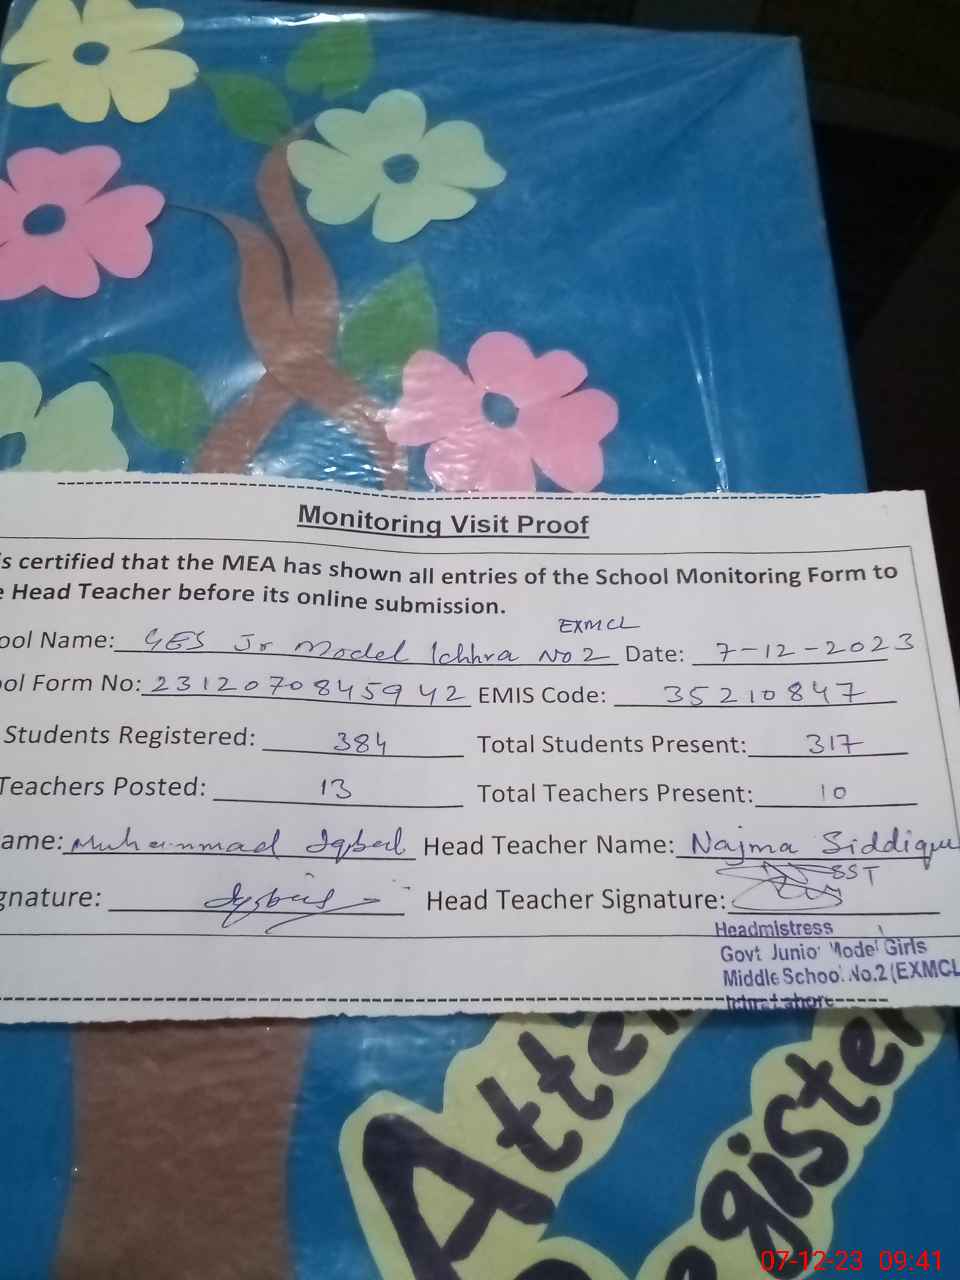 Monitoring Visit Proof
is certified that the MEA has shown all entries of the School Monitoring Form to
e Head Teacher before its online submission.
EXMCL
ool Name: GES Jr Model Ichhra No 2 Date: 7-12-2023
ool Form No: 2312070845942 EMIS Code: 35210847
Students Registered: 384 Total Students Present: 317
Teachers Posted: 13 Total Teachers Present: 10
ame: Muhammad Iqbal Head Teacher Name: Najma Siddique
SST
gnature: Head Teacher Signature:
Headmistress
Govt Junior Model Girls
Middle School No.2 (EXMCL
Lahore
Atte
Register
07-12-23 09:41